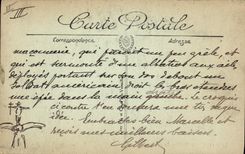 III
Carte Postale
Correspondance Adresse
maconnerie, qui parait un peu grêle, et
qui est surmonté d'un aigle aux ailes
déployés portant sur son dos debout un
soldat americain dont les bras étendus
une épée dans la main gauche. Le croquis
ci contre t'en donnera une
idée. Embrasse bien Marcelle et
reçois mes meilleurs baisers.
Gilbert